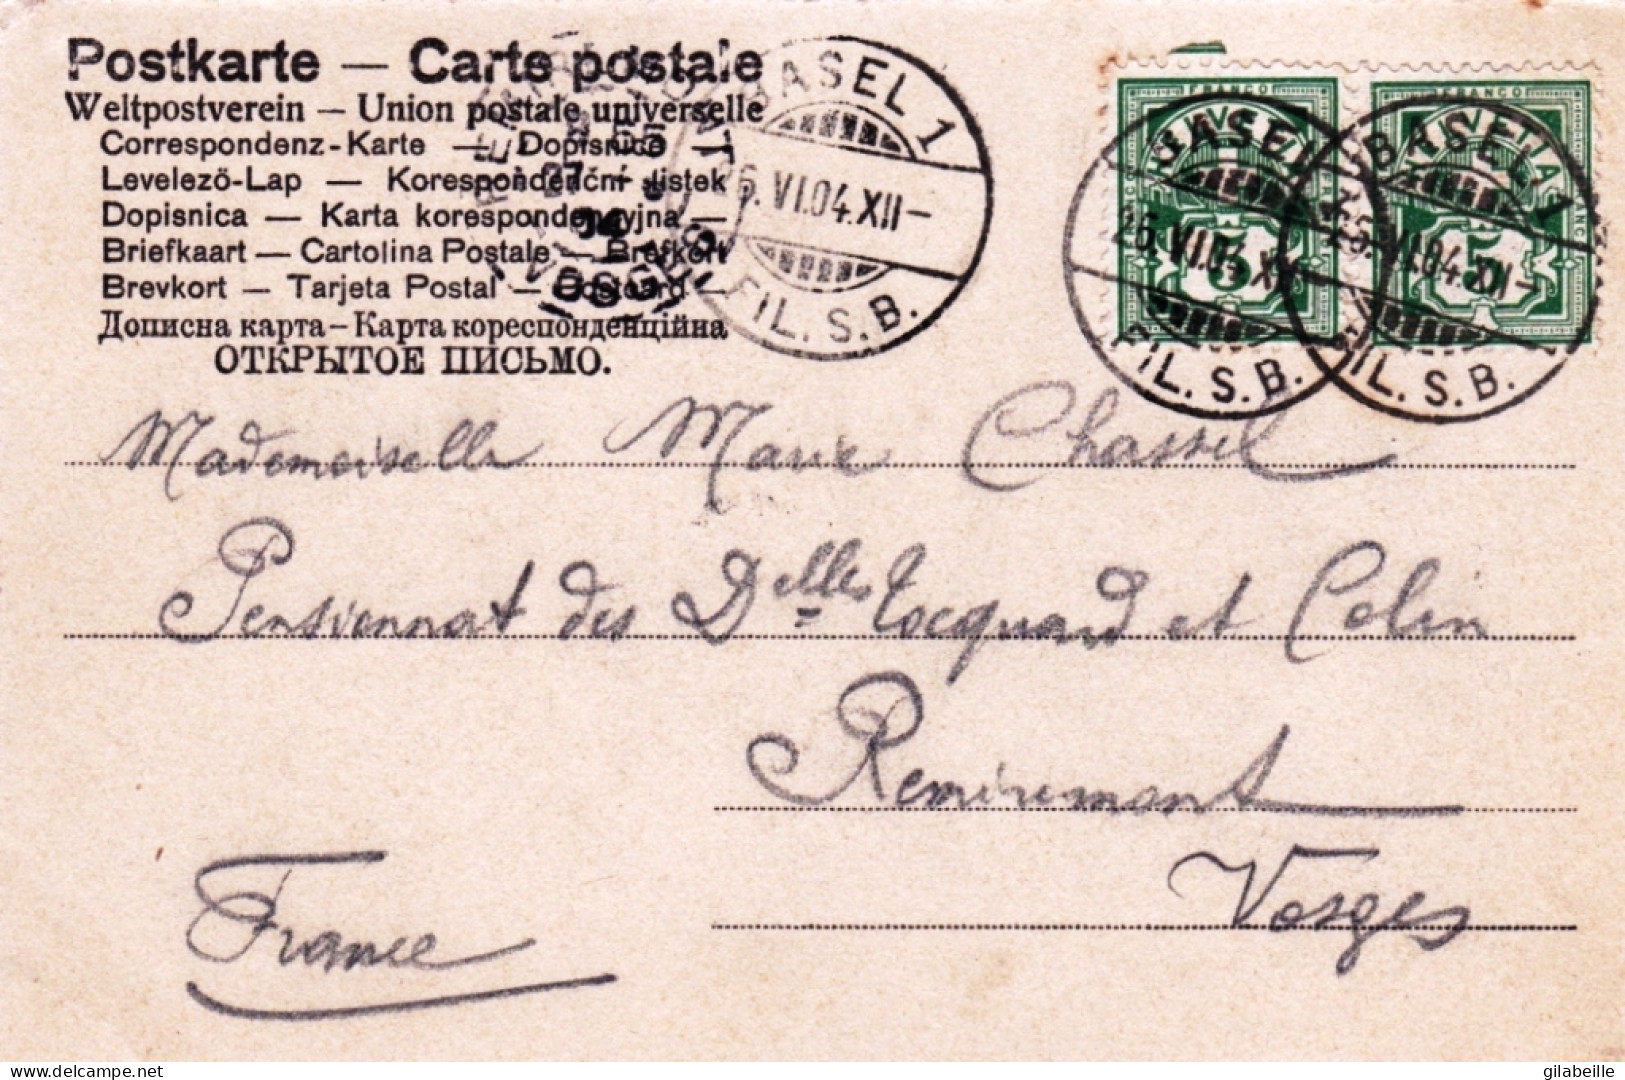 Postkarte — Carte postale
Weltpostverein — Union postale universelle
Correspondenz-Karte — Dopisnice —
Levelező-Lap — Korespondenční listek
Dopisnica — Karta korespondencyjna —
Briefkaart — Cartolina Postale — Brefkort
Brevkort — Tarjeta Postal — Postcard —
Дописна карта — Карта кореспонденційна
ОТКРЫТОЕ ПИСЬМО.
BASEL 1
26.VI.04.XII—
FIL. S. B.
VOSGES
FRANCO
HELVETIA
5
BASEL 1
26.VI.04.XII—
FIL. S. B.
FRANCO
HELVETIA
5
BASEL 1
26.VI.04.XII—
FIL. S. B.
Mademoiselle Marie Chassel
Pensionnat des Delles Tocquard et Colin
Remiremont
Vosges
France
delcampe.net
gilabeille